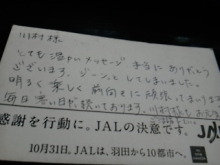 川村様
とても温かいメッセージ本当にありがとう
ございます。ジーンとしてしまいました。
明るく楽しく前向きに頑張ってまいります
毎日寒い日が続いております。川村様も
感謝を行動に。JALの決意です。
10月31日、JALは、羽田から10都市へ
JAL